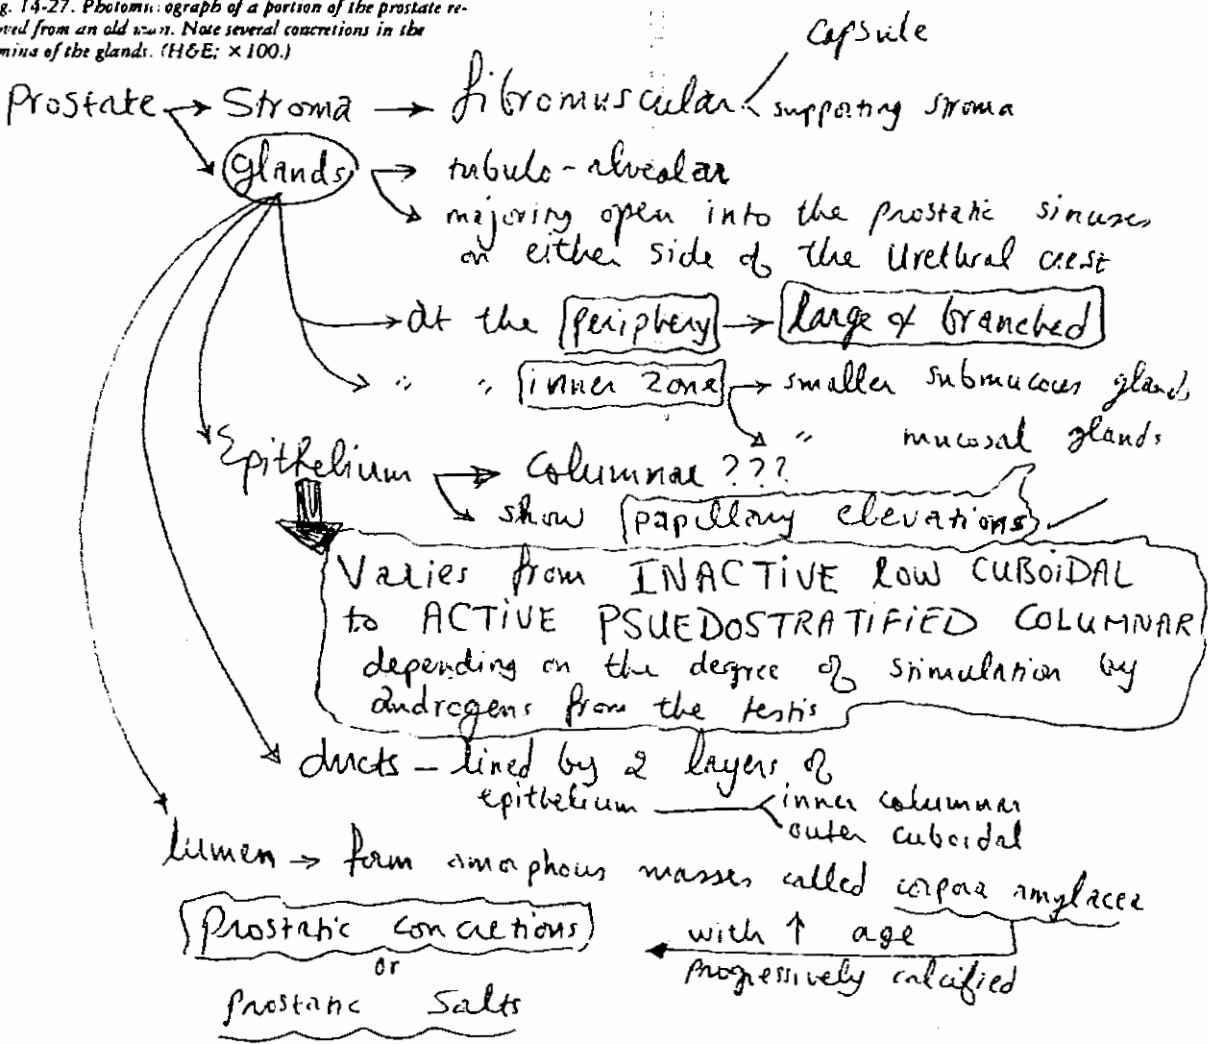 g. 14-27. Photomicrograph of a portion of the prostate re-
ved from an old man. Note several concretions in the
mina of the glands. (H&E; × 100.)
capsule
Prostate → Stroma → fibromuscular < supporting stroma
glands → tubulo-alveolar
→ majority open into the prostatic sinuses
on either side of the Urethral crest
→ at the periphery → large & branched
→ " " inner zone → smaller submucous glands
→ " mucosal glands
Epithelium → columnar ???
→ show papillary elevations
Varies from INACTIVE low CUBOIDAL
to ACTIVE PSUEDOSTRATIFIED COLUMNAR
depending on the degree of stimulation by
androgens from the testis
ducts – lined by 2 layers of
epithelium < inner columnar
outer cuboidal
lumen → form amorphous masses called corpora amylacea
Prostatic concretions ← with ↑ age
or progressively calcified
Prostatic Salts